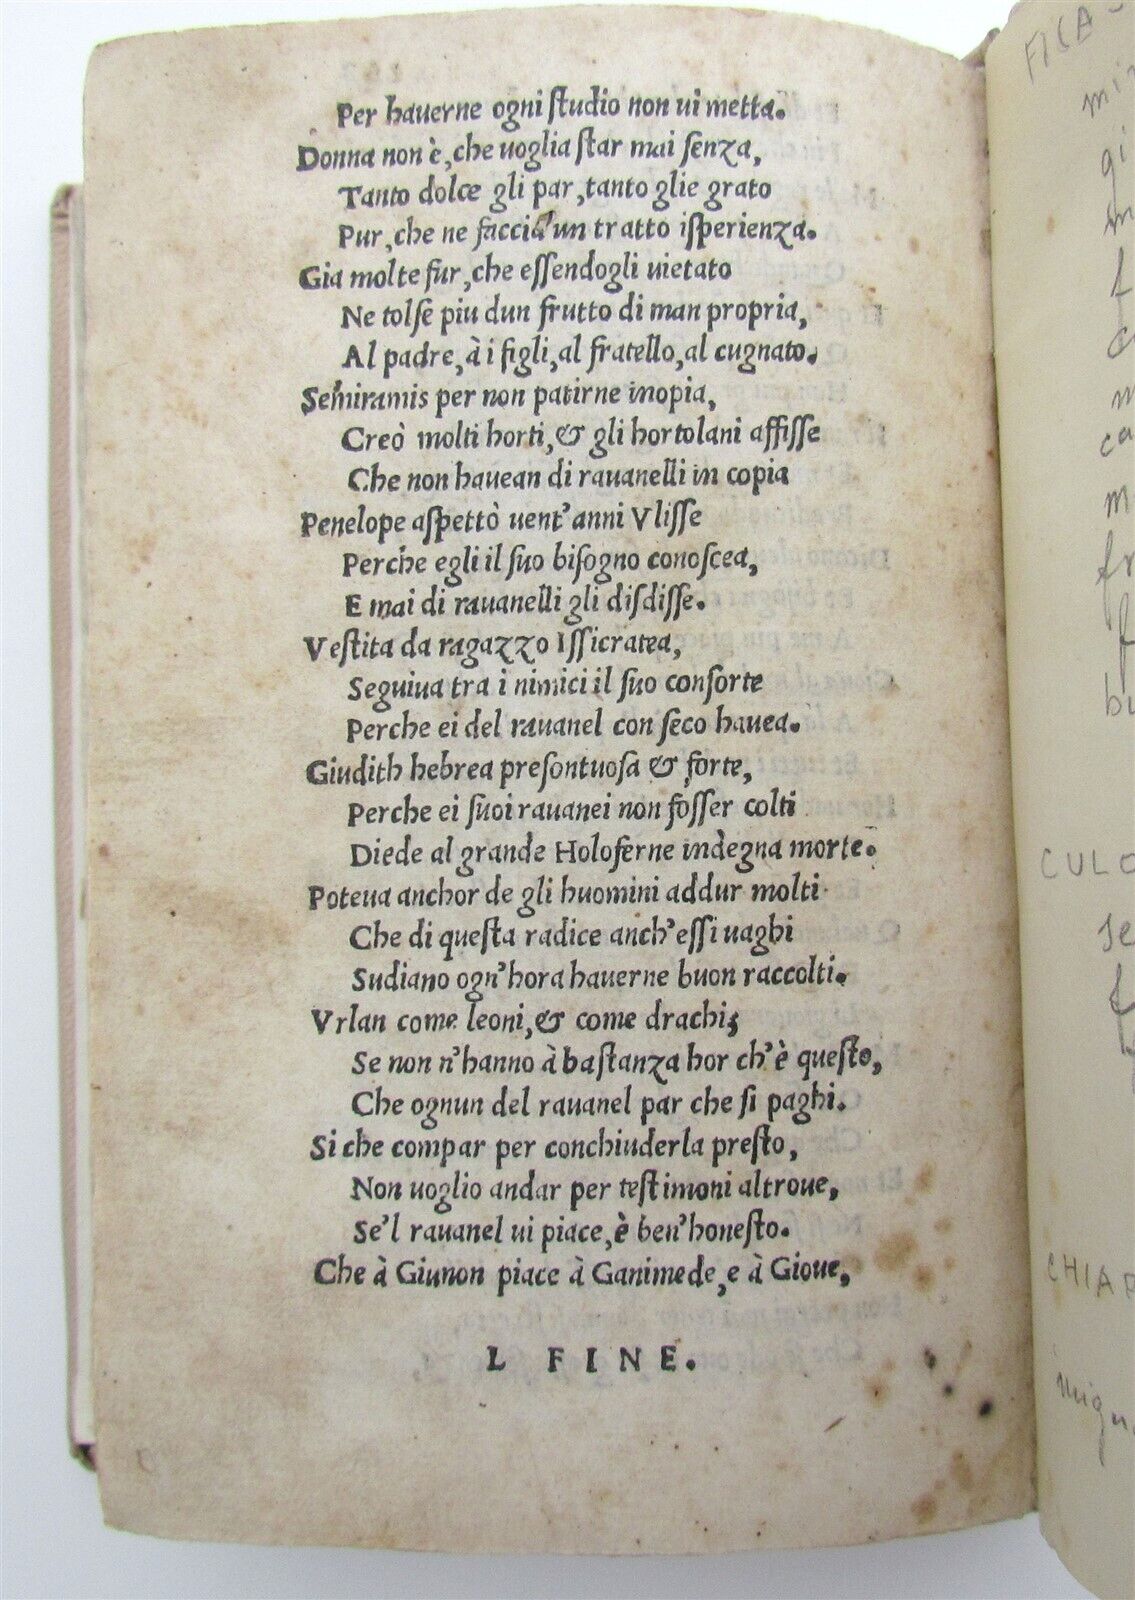 Per hauerne ogni ſtudio non ui metta.
Donna non è, che uoglia ſtar mai ſenza,
Tanto dolce gli par, tanto glie grato
Pur, che ne faccia un tratto iſperienza.
Gia molte fur, che eſſendogli uietato
Ne tolſe piu dun frutto di man propria,
Al padre, à i figli, al fratello, al cugnato.
Semiramis per non patirne inopia,
Creò molti horti, & gli hortolani affiſſe
Che non hauean di rauanelli in copia
Penelope aſpettò uent'anni Vliſſe
Perche egli il ſuo biſogno conoſcea,
E mai di rauanelli gli diſdiſſe.
Veſtita da ragazzo Iſſicratea,
Seguiua tra i nimici il ſuo conſorte
Perche ei del rauanel con ſeco hauea.
Giudith hebrea preſontuoſa & forte,
Perche ei ſuoi rauanei non foſſer colti
Diede al grande Holoferne indegna morte.
Poteua anchor de gli huomini addur molti
Che di queſta radice anch'eſſi uaghi
Sudiano ogn'hora hauerne buon raccolti.
Vrlan come leoni, & come drachi,
Se non n'hanno à baſtanza hor ch'è queſto,
Che ognun del rauanel par che ſi paghi.
Si che compar per conchiuderla preſto,
Non uoglio andar per teſtimoni altroue,
Se'l rauanel ui piace, è ben'honeſto.
Che à Giunon piace à Ganimede, e à Gioue,
L FINE.
FICA
mi
gi
m
f
c
m
ca
m
fr
f
bu
CULO
se
f
CHIA
mign